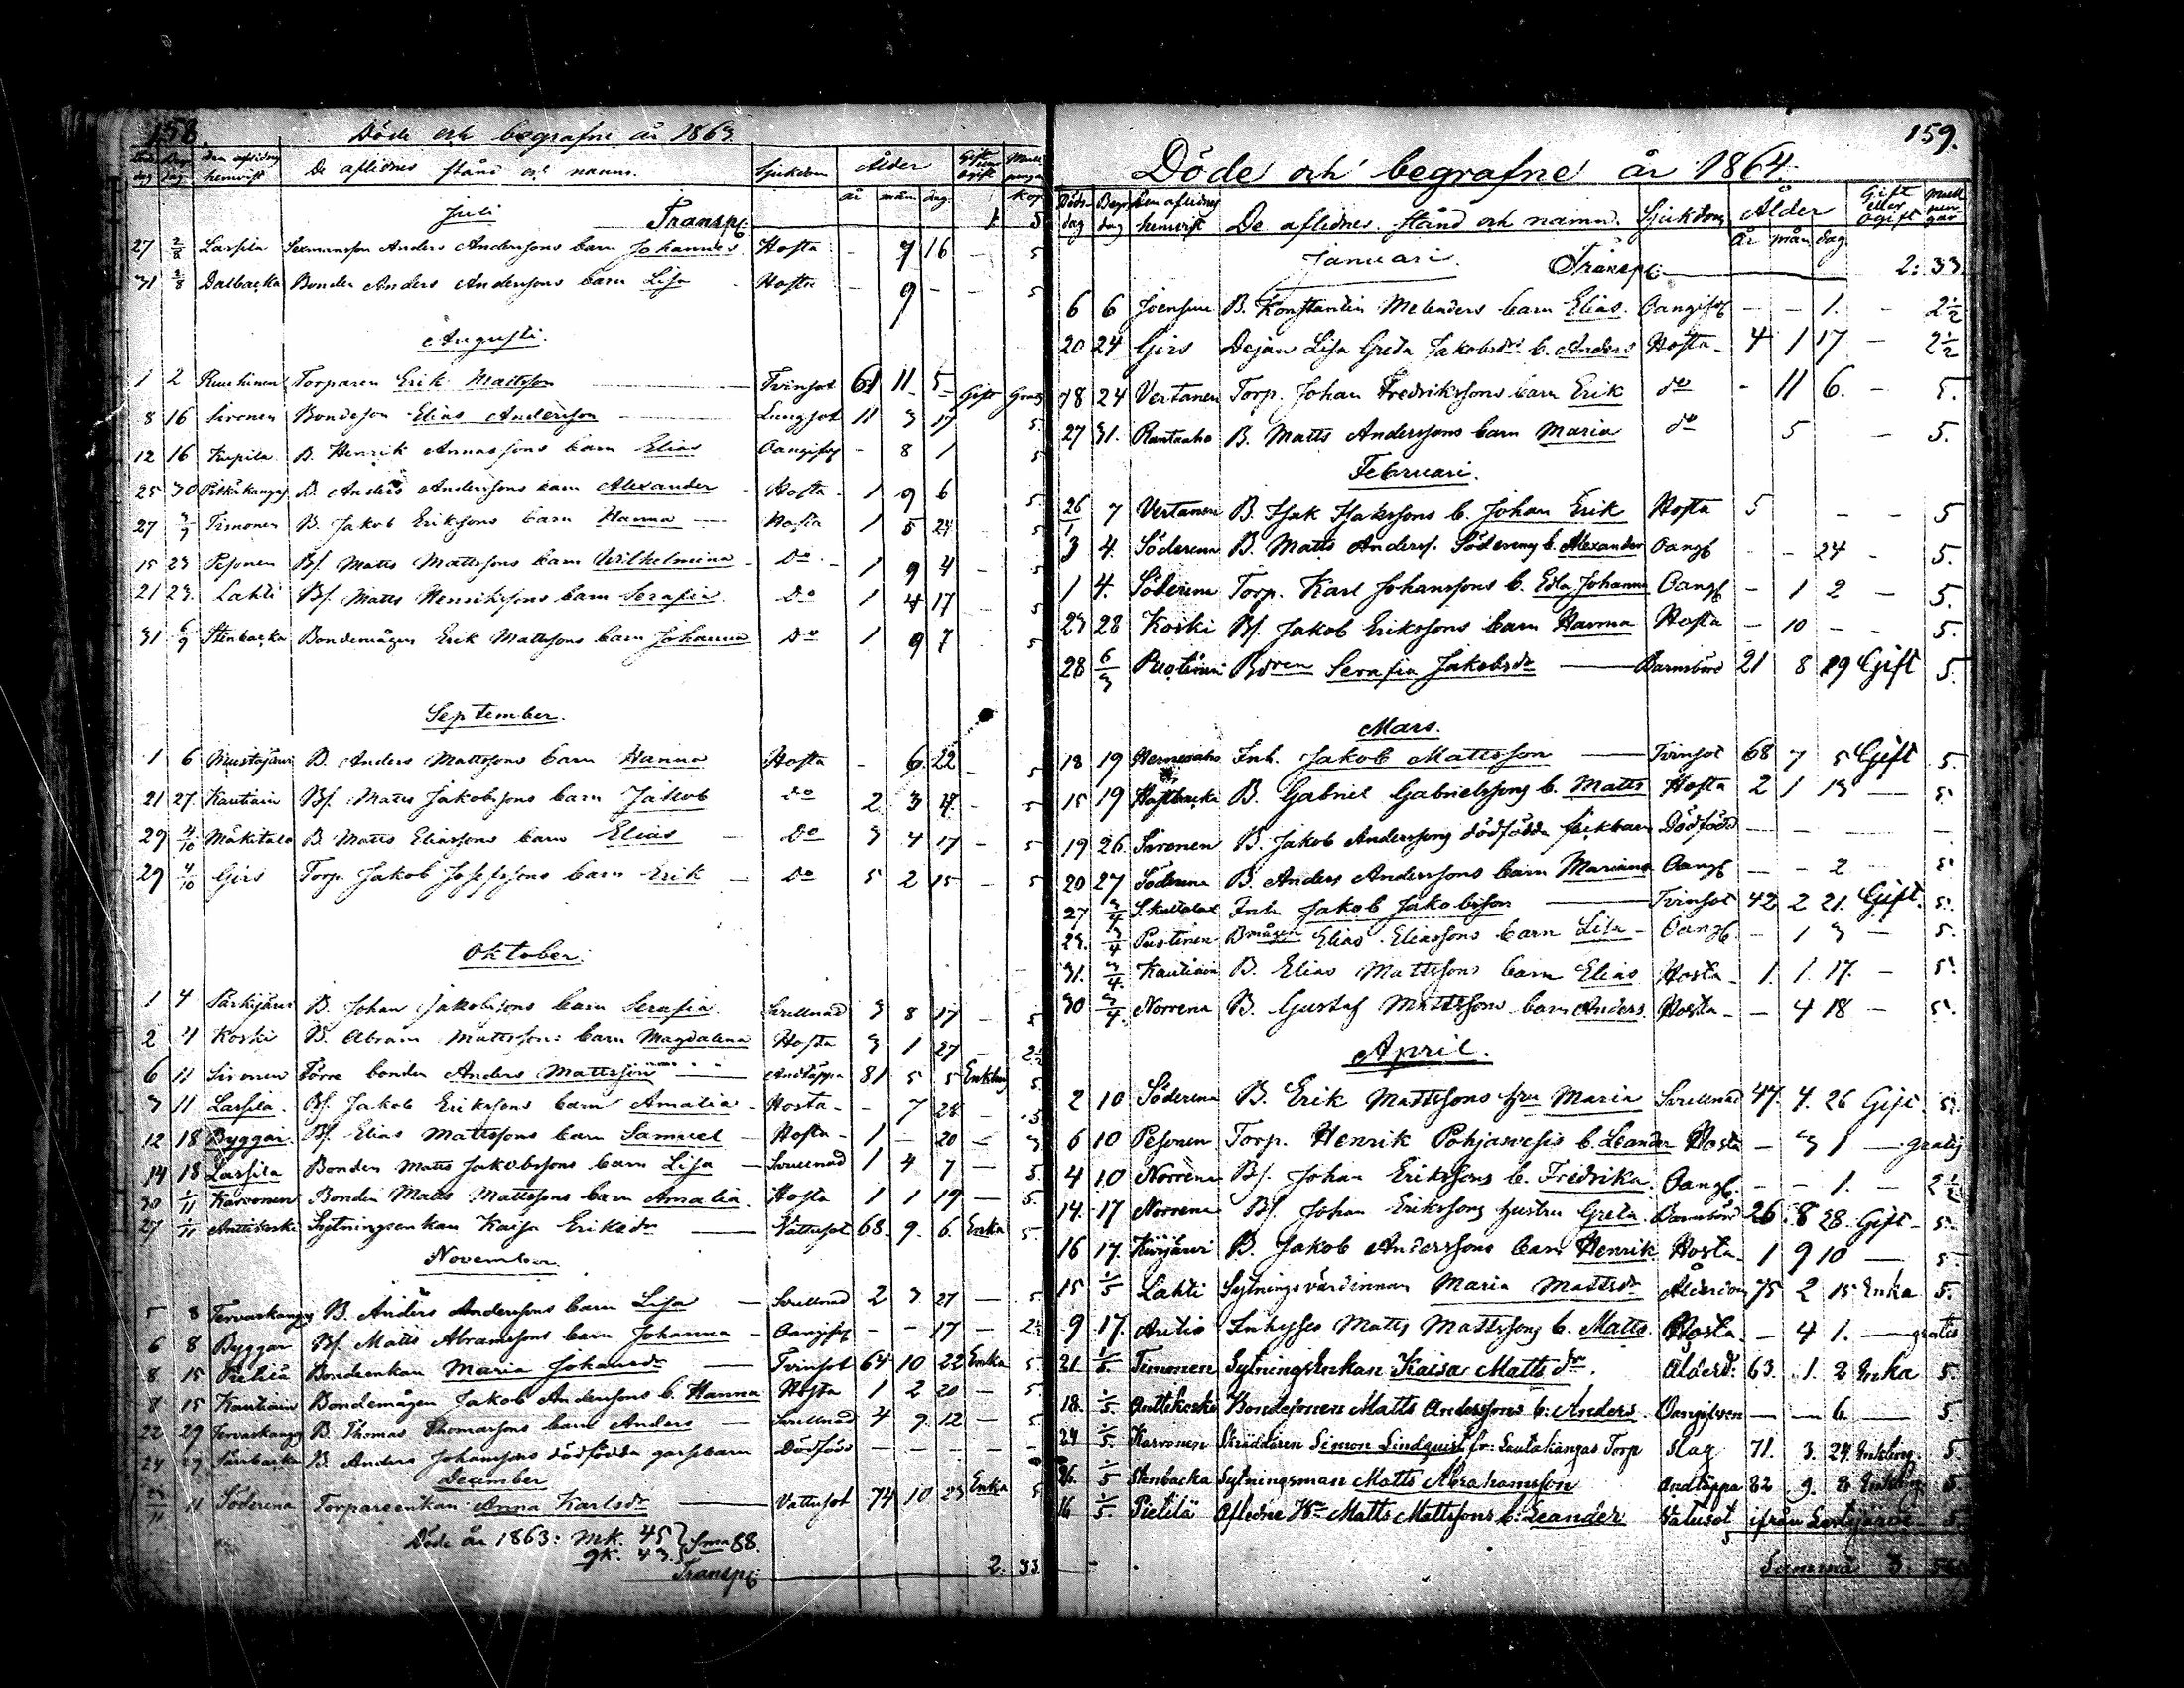 158.
Döde och begrafne år 1863.
Döds dag Begr dag den aflidnes hemvist De aflidnes stånd och namn. Sjukdom Ålder Gift eller ogift Mull pengar
år mån. dag. kop
Juli Transp: 1 5
27 2/8 Lassila Andersons barn Johannes Hosta - 9 16 - 5
31 2/8 Dalbacka Bonden Anders Andersons barn Lisa - Hosta - 9 - - 5
Augusti.
1 2 Ruuhinen Torparen Erik Mattsson Tvinsot 61 11 5 Gift Gratis
8 16 Sironen Bondeson Elias Anderson Lungsot 11 3 17 5.
12 16 Kepila B. Henrik Annassons barn Elias Oangifvt - 8 1 5
25 30 Pitkäkangas B. Anders Andersons barn Alexander - Hosta - 1 9 6 5.
27 Timonen B. Jakob Eriksons barn Hanna Hosta 1 5 24 5
15 23 Pesonen Bs. Matts Mattssons barn Wilhelmina - Do - 1 9 4 - 5
21 23. Lahti Bs. Matts Henrikssons barn Serafia Do 1 4 17 5
31 6/9 Stenbacka Bondemågen Erik Mattssons barn Johanna Do 1 9 7 5
September.
1 6 Mustajärvi B. Anders Mattssons barn Hanna Hosta - 6. 22 - 5
21 27. Kautiain Bs. Matts Jakobssons barn Jakob do 2 3 4. - 5
29 4/10 Mäkitalo B. Matts Eliassons barn Elias - Do 3 4 17 - 5
29 4/10 Girs Torp. Jakob Josefssons barn Erik - Do 5 2 15 - 5
Oktober.
1 4 Särkijärvi B. Johan Jakobssons barn Serafia Svullnad 3 8 17 - 5
2 4 Koski B. Abram Mattsson: barn Magdalena Hosta 3 1 27 - 2½
6 11 Sironen Förre bonden Anders Mattsson Andtäppa 81 5 5 Enkling 5.
3 11 Lassila. Bs. Jakob Erikssons barn Amalia - Hosta - - 7 28 - 5
12 18 Byggar. Bs. Elias Mattssons barn Samuel - Hosta - 1 - 20 - 3
14 18 Lassila Bonden Matts Jakobssons barn Lisa - Svullnad 1 4 7 - 5.
30 1/11 Karvonen Bonden Matts Mattssons barn Amalia. Hosta 1 1 19 - 5.
27 1/11 Anttikoski Sytningsenkan Kaisa Eriksdr Vattusot 68. 9. 6. Enka 5.
November.
5 8 Tervaskangas B. Anders Andersons barn Lisa - Svullnad 2 3 27 - 5
6 8 Byggar Bs. Matts Abramssons barn Johanna - Oangifvt - - 17 - 2½
8 15 Pielilä Bondeenkan Maria Johansdr Tvinsot 64 10 22 Enka 5.
8 15 Kautiain Bondemågen Jakob Anderssons b. Hanna Hosta 1 2 20 - 5.
22 29 Tervaskangas B. Thomas Thomassons barn Anders - Svullnad 4 9. 12 - 5
24 29 B. Anders Johanssons dödfödda gossbarn Dödfödd - - - - -
December
11 Söderena Torpareenkan Anna Karlsdr Vattusot 74 10 23 Enka 5
Döde år 1863: Mk. 45 } Sma 88.
qk. 43.
Transp: 2. 33
159.
Döde och begrafne år 1864.
Döds dag Begr dag Den aflidnes hemvist De aflidnes stånd och namn. Sjukdom Ålder Gift eller ogift Mull pen gar
År mån dag
Januari. Transp: 2: 33.
6 6 Joensuu B. Konstantin Melenders barn Elias. Oangifvt - - 1. - 2½
20 24 Girs Dejan Lisa Greta Jakobsdrs b. Anders Hosta - 4 1 17 - 2½
18 24 Vertanen Torp. Johan Fredrikssons barn Erik do - 11 6. - 5.
27 31. Rantaaho B. Matts Anderssons barn Maria do 5 - 5.
Februari.
26/1 7 Vertanen B. Isak Isakssons b. Johan Erik Hosta 5 - - 5
3 4. Söderena B. Matts Anderss. Söderenas b. Alexander Oangf - - 24 - 5.
1 4. Söderena Torp. Karl Johanssons b. Edla Johanna Oangf - 1 2 - 5.
23 28 Koski Bs. Jakob Erikssons barn Hanna Hosta - 10 - - 5.
28 6/3 Puotinen Bdren Serafia Jakobsdr Barnsbörd 21 8 19 Gift 5.
Mars.
18 19 Hernesaho Inh. Jakob Mattsson Tvinsot 68 7 5 Gift 5.
15 19 Hästbacka B. Gabriel Gabrielssons b. Matts Hosta 2 1 13 - 5.
19 26. Sironen B. Jakob Anderssons dödfödda flickbarn Dödfödd - - - - -
20 27 Söderena B. Anders Anderssons barn Mariana Oangf - - 2 - 5.
27 3/4 Inh. Jakob Jakobsson Tvinsot 42 2 21. Gift. 5.
23. 3/4 Puotinen Bmågen Elias Eliassons barn Lisa - Oangf. - 1 3 - 5.
31. 3/4. Kautiain B. Elias Mattssons barn Elias Hosta - 1. 1. 17. - 5.
30 3/4. Norrena B. Gustaf Mattssons barn Anders. Hosta - - 4 18 - 5.
April.
2 10 Söderena B. Erik Mattssons hru Maria Svullnad 47. 4. 26 Gift. 5.
6 10 Pesonen Torp. Henrik Pohjasvesis b. Leander Hosta - 3 1 - gratis
4 10 Norrena Bs. Johan Erikssons b. Fredrika. Oangf. - - 1. - 2½
14. 17 Norrena Bs. Johan Erikssons hustru Greta Barnsbörd 26 8 28 Gift - 5.
16 17. Kivijärvi B. Jakob Anderssons barn Henrik Hosta - 1 9 10 - 5.
15 1/5 Lahti Sytningsvärdinnan Maria Mattsdr Ålderdom 75 2 15 Enka 5.
9 17. Antio Inhyses Matts Mattssons b. Matts. Hosta - 4 1. - gratis
21 1/5. Timonen SytningsEnkan Kaisa Mattsdr. Ålderd: 63. 1. 2 Enka 5.
18. 1/5 Anttikoski Bondesonen Matts Anderssons b: Anders. Oangifven - - 6. - 5
24 1/5. Karvonen Skräddaren Simon Lindquist fr: Lautakangas Torp Slag 71. 3. 24. Enkling. 5.
26. 1/5 Stenbacka Sytningsman Matts Abrahamsson Andtäppa 82. 9. 8 Enkling. 5.
16 1/5. Pietilä Aflidne Hn Matts Mattssons b: Leander Vatusot ifrån Lestijärvi 5.
Summa 3.